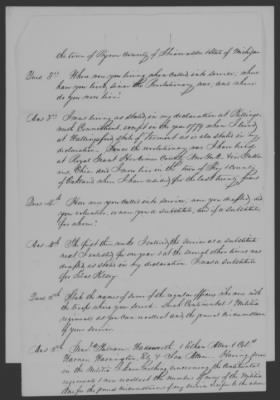 the town of Byron County of Shiawassee State of Michigan
Ques 3rd Where were you living when called into service, where
have you lived since the Revolutionary war, and where
do you now live?
Ans 3rd I was living as stated in my declaration at Killing-
worth Connecticut except in the year 1779 when I lived
at Wallingsford State of Vermont as is also stated in my
declaration. Since the revolutionary war I have lived
at Royal Grant Herkimer County New York
Ohio and I now live in the town of County
of Oakland where I have resided for the last twenty years
Ques 4th How were you called into service, were you drafted, did
you volunteer, or were you a substitute, and if a substitute
for whom?
Ans 4th The first time I entered the service as a substitute
next I enlisted for one year & at the several other times was
drafted as stated in my declaration. I was a Substitute
for Silas Kelsey
Ques 5th State the names of some of the regular officers who were with
the troops where you served. Such Continental & Militia
regiments as you can recollect and the general circumstances
of your service.
Ans 5th Genl Putnam Wadsworth & Ethan Allen & Col
Warner Harrington & Ira Allen. Having been
in the Militia I knew nothing concerning the Continental
regiments & now recollect the number of any of the Militia
And for the general circumstances of my service I refer to the above